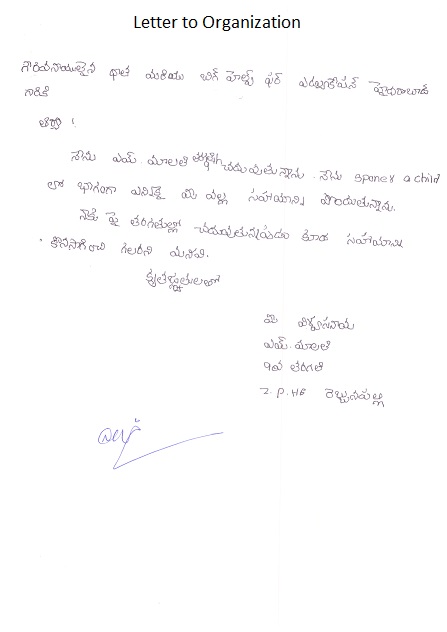 Letter to Organization
గౌరవనీయులైన దాత మరియు బిగ్ హెల్ప్ ఫర్ ఎడ్యుకేషన్ హైదరాబాద్
గారికి
నేను ఎమ్. మాలతి చదువుతున్నాను. నేను sponer a child
లో భాగంగా ఎన్నికై మీ వల్ల సహాయాన్ని పొందుతున్నాను.
నాకు పై తరగతుల్లో చదువుతున్నపుడు కూడ సహాయాన్ని
కొనసాగించ గలరని మనవి.
కృతజ్ఞతలతో
మీ విశ్వసనీయ
ఎమ్. మాలతి
9వ తరగతి
Z.P.HS